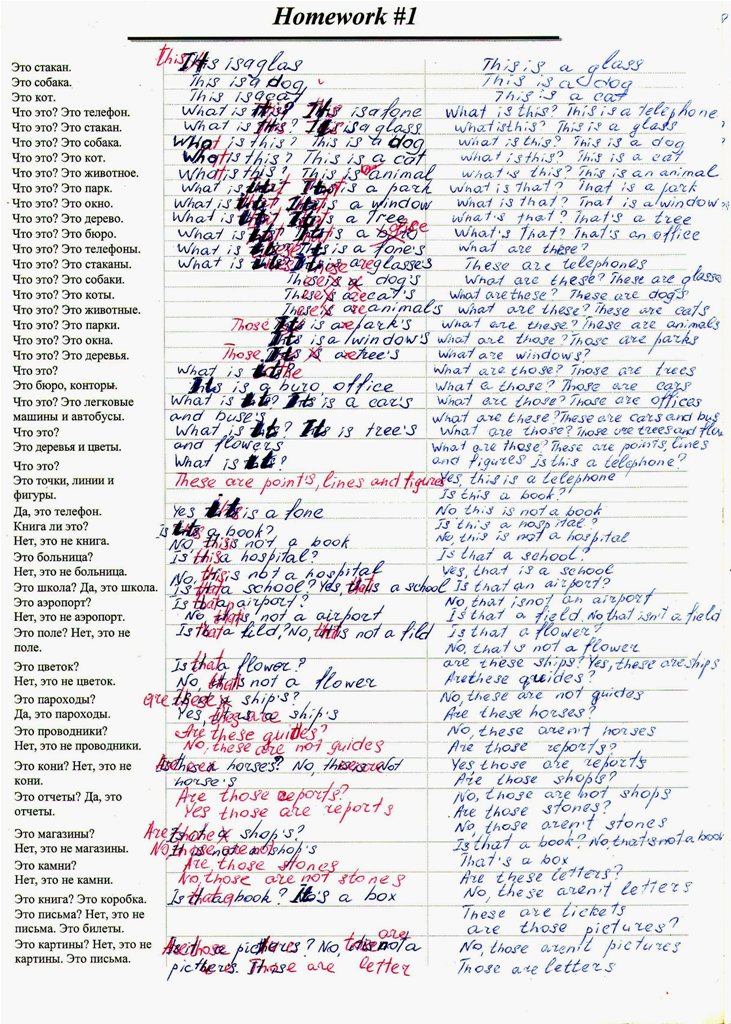 Homework #1
Это стакан. This is a glas This is a glass
Это собака. This is a dog This is a dog
Это кот. This is a cat This is a cat
Что это? Это телефон. What is this? This is a fone What is this? This is a telephone
Что это? Это стакан. What is this? It is a glass What is this? This is a glass
Что это? Это собака. What is this? This is a dog What is this? This is a dog
Что это? Это кот. What is this? This is a cat What is this? This is a cat
Что это? Это животное. What is this? This is an animal What's this? This is an animal
Что это? Это парк. What is that? It is a park What is that? That is a park
Что это? Это окно. What is that? It is a window What is that? That is a window
Что это? Это дерево. What is that? It is a tree What's that? That's a tree
Что это? Это бюро. What is office What's that? That's an office
Что это? Это телефоны. What is is a fone's What are these?
Что это? Это стаканы. What is These are glasses's These are telephones
Что это? Это собаки. These a dog's What are these? These are glasses
Что это? Это коты. These are cat's What are these? These are dog's
Что это? Это животные. These are animals What are these? These are cats
Что это? Это парки. Those is are park's What are these? These are animals
Что это? Это окна. It is a window's What are those? Those are parks
Что это? Это деревья. Those are tree's What are windows?
Что это? What is What are those? Those are trees
Это бюро, конторы. It is a buro office What a those? Those are cars
Что это? Это легковые What is it? It is a car's What are those? Those are offices
машины и автобусы. and buse's What are these? These are cars and bus
Что это? What is it? It is tree's What are those? Those are trees and
Это деревья и цветы. and flowers What are those? These are points, lines
Что это? What is it? and figures Is this a telephone?
Это точки, линии и These are points, lines and figures Yes, this is a telephone
фигуры. Is this a book?
Да, это телефон. Yes it is a fone No this is not a book
Книга ли это? Is it a book? Is this a hospital?
Нет, это не книга. No, this is not a book No, this is not a hospital
Это больница? Is this a hospital? Is that a school?
Нет, это не больница. No, this is not a hospital Yes, that is a school
Это школа? Да, это школа. Is that a school? Yes, that is a school Is that an airport?
Это аэропорт? Is that a airport? No, that is not an airport
Нет, это не аэропорт. No that is not a airport Is that a field. No that isn't a field
Это поле? Нет, это не Is that a fild? No, that is not a fild Is that a flower?
поле. No, that's not a flower
Это цветок? Is that a flower? are these ships? Yes, these are ships
Нет, это не цветок. No, that is not a flower Are these guides?
Это пароходы? are these ship's? No, these are not guides
Да, это пароходы. Yes, these are ship's Are these horses?
Это проводники? Are these guides? No, these aren't horses
Нет, это не проводники. No, these are not guides Are those reports?
Это кони? Нет, это не horses? No, not Yes those are reports
кони. horse's Are those shops?
Это отчеты? Да, это Are those reports? No, those are not shops
отчеты. Yes those are reports Are those stones?
Это магазины? Are shop's? No, those aren't stones
Нет, это не магазины. shop's Is that a book? No that's not a book
Это камни? Are those stones That's a box
Нет, это не камни. No those are not stones Are these letters?
Это книга? Это коробка. Is that a book? It's a box No, these aren't letters
Это письма? Нет, это не These are tickets
письма. Это билеты. are those pictures?
Это картины? Нет, это не those pictures? No, not a No, those aren't pictures
картины. Это письма. Those are letter Those are letters